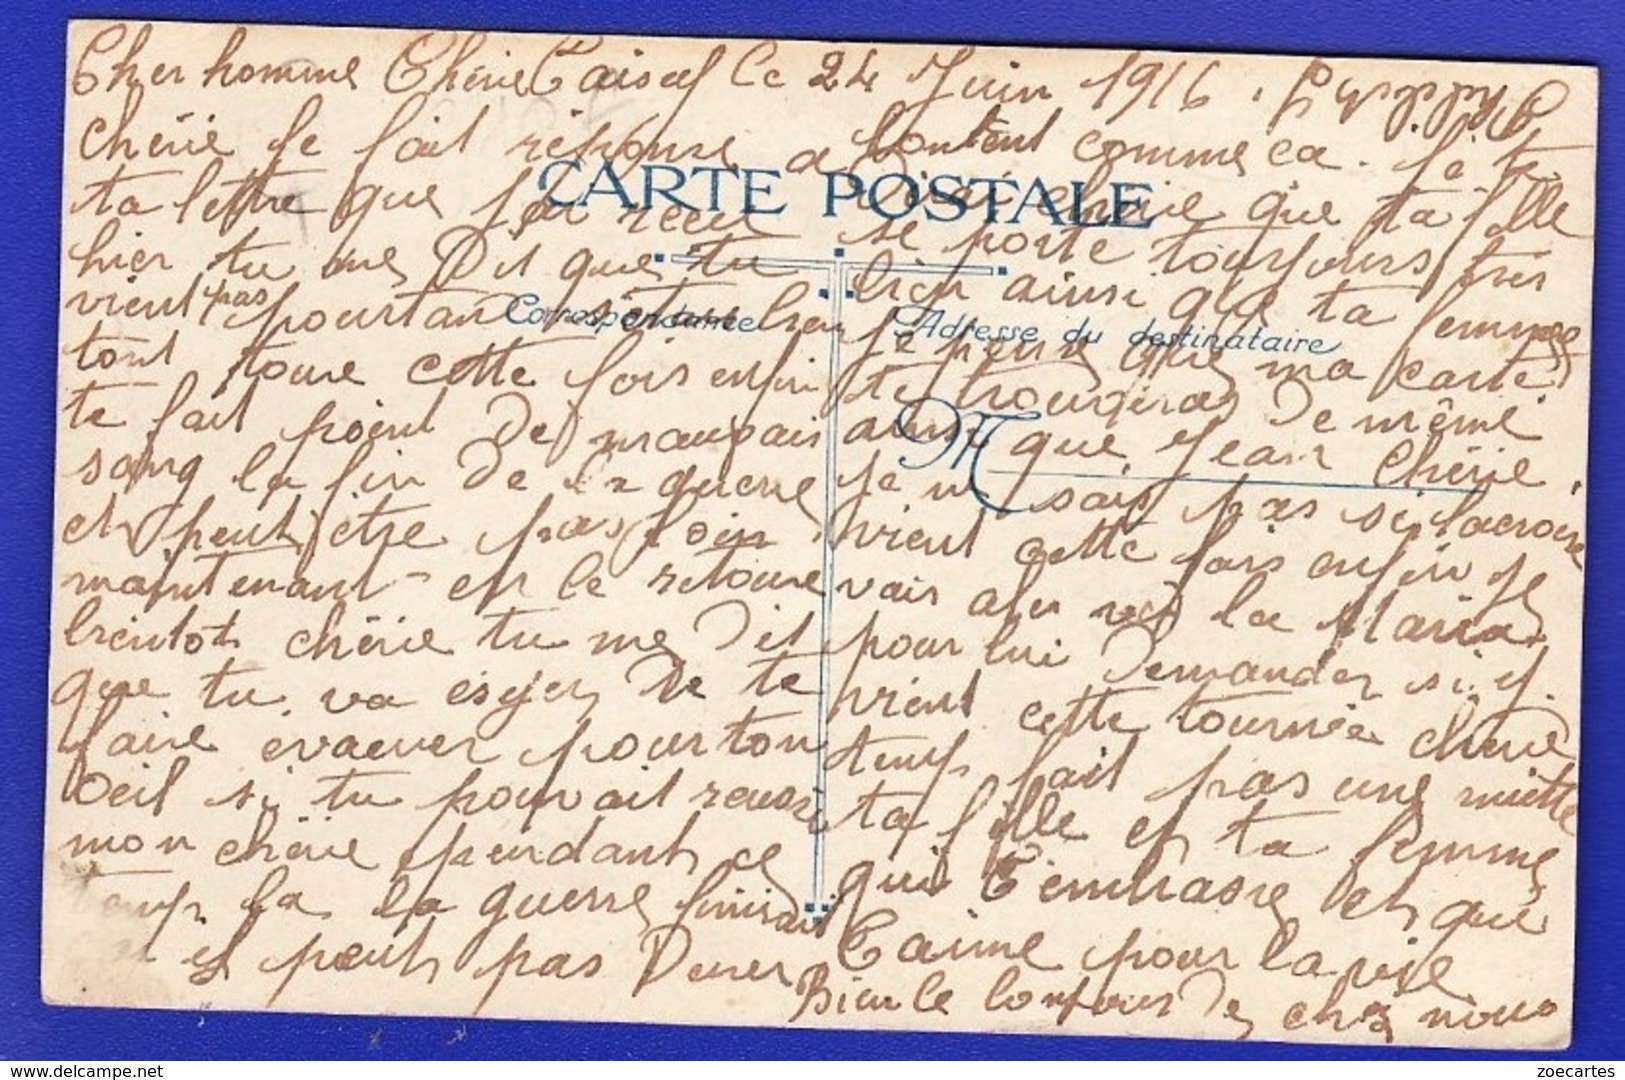 Cher homme Chérie Le 24 Juin 1916.
chérie Je fait réponse a
CARTE POSTALE
ta lettre que j'eu recu
hier tu me Dit que tu
vient pas pourtan bien
Correspondance
tont toure cette fois enfin
te fait point De mauvais
sang la fin De la guerre
et peut être pas loin
maintenant et le retoure
bientot chérie tu me Dit
que tu va esyer De te
faire evacuer pour ton
oeil si tu pouvait reussi
mon chérie pendant ce
temp la la guerre finirait
el peut pas Durer
content comme ca. Je te
Dirai chérie que ta fille
se porte toujours très
bien ainsi que ta femme
Adresse du destinataire
Je pense que ma carte
te trouvera De même
M
ainsi que Jean chérie.
Je ne sais pas si lacroire
vient cette fois enfin Je
vais aler ver la Maria
pour lui Demander si el
vient cette tournée chérie
temp fait pas une miette
ta fille et ta femme
qui T'embrasse et que
T'aime pour la vie
Bien le bonjours De chez nous
zoecartes